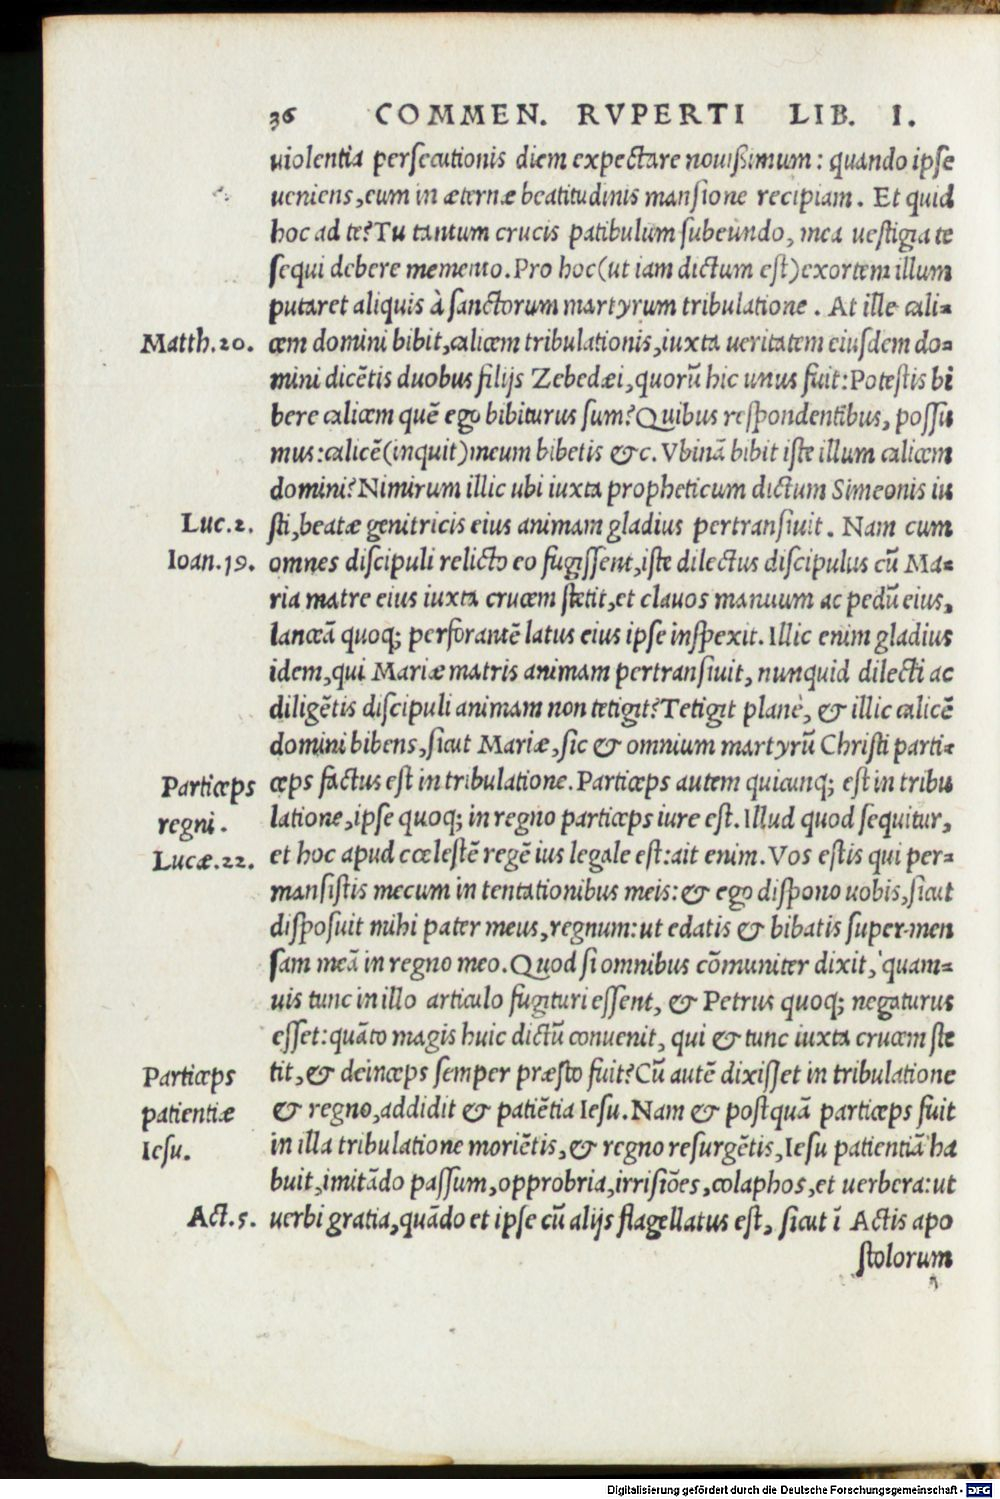 36 COMMEN. RVPERTI LIB. I.
uiolentia persecutionis diem expectare nouißimum: quando ipse
ueniens, eum in æternæ beatitudinis mansione recipiam. Et quid
hoc ad te? Tu tantum crucis patibulum subeundo, mea uestigia te
sequi debere memento. Pro hoc (ut iam dictum est) exortem illum
putaret aliquis à sanctorum martyrum tribulatione. At ille cali-
Matth.20. cem domini bibit, calicem tribulationis, iuxta ueritatem eiusdem do-
mini dicẽtis duobus filijs Zebedæi, quorũ hic unus fuit: Potestis bi
bere calicem quẽ ego bibiturus sum? Quibus respondentibus, possu
mus: calicẽ (inquit) meum bibetis &c. Vbinã bibit iste illum calicem
domini? Nimirum illic ubi iuxta propheticum dictum Simeonis iu
Luc.2. sti, beatæ genitricis eius animam gladius pertransiuit. Nam cum
Ioan.19. omnes discipuli relicto eo fugissent, iste dilectus discipulus cũ Ma-
ria matre eius iuxta crucem stetit, et clauos manuum ac pedũ eius,
lanceã quoq; perforantẽ latus eius ipse inspexit. Illic enim gladius
idem, qui Mariæ matris animam pertransiuit, nunquid dilecti ac
diligẽtis discipuli animam non tetigit? Tetigit planè, & illic calicẽ
domini bibens, sicut Mariæ, sic & omnium martyrũ Christi parti-
Particeps ceps factus est in tribulatione. Particeps autem quicunq; est in tribu
regni. latione, ipse quoq; in regno particeps iure est. Illud quod sequitur,
Lucæ.22. et hoc apud cœlestẽ regẽ ius legale est: ait enim. Vos estis qui per-
mansistis mecum in tentationibus meis: & ego dispono uobis, sicut
disposuit mihi pater meus, regnum: ut edatis & bibatis super men
sam meã in regno meo. Quod si omnibus cõmuniter dixit, quam-
uis tunc in illo articulo fugituri essent, & Petrus quoq; negaturus
esset: quãto magis huic dictũ conuenit, qui & tunc iuxta crucem ste
Particeps tit, & deinceps semper præsto fuit? Cũ autẽ dixisset in tribulatione
patientiæ & regno, addidit & patiẽtia Iesu. Nam & postquã particeps fuit
Iesu. in illa tribulatione moriẽtis, & regno resurgẽtis, Iesu patientiã ha
buit, imitãdo passum, opprobria, irrisiões, colaphos, et uerbera: ut
Act.5. uerbi gratia, quãdo et ipse cũ alijs flagellatus est, sicut ĩ Actis apo
stolorum
Digitalisierung gefördert durch die Deutsche Forschungsgemeinschaft - DFG